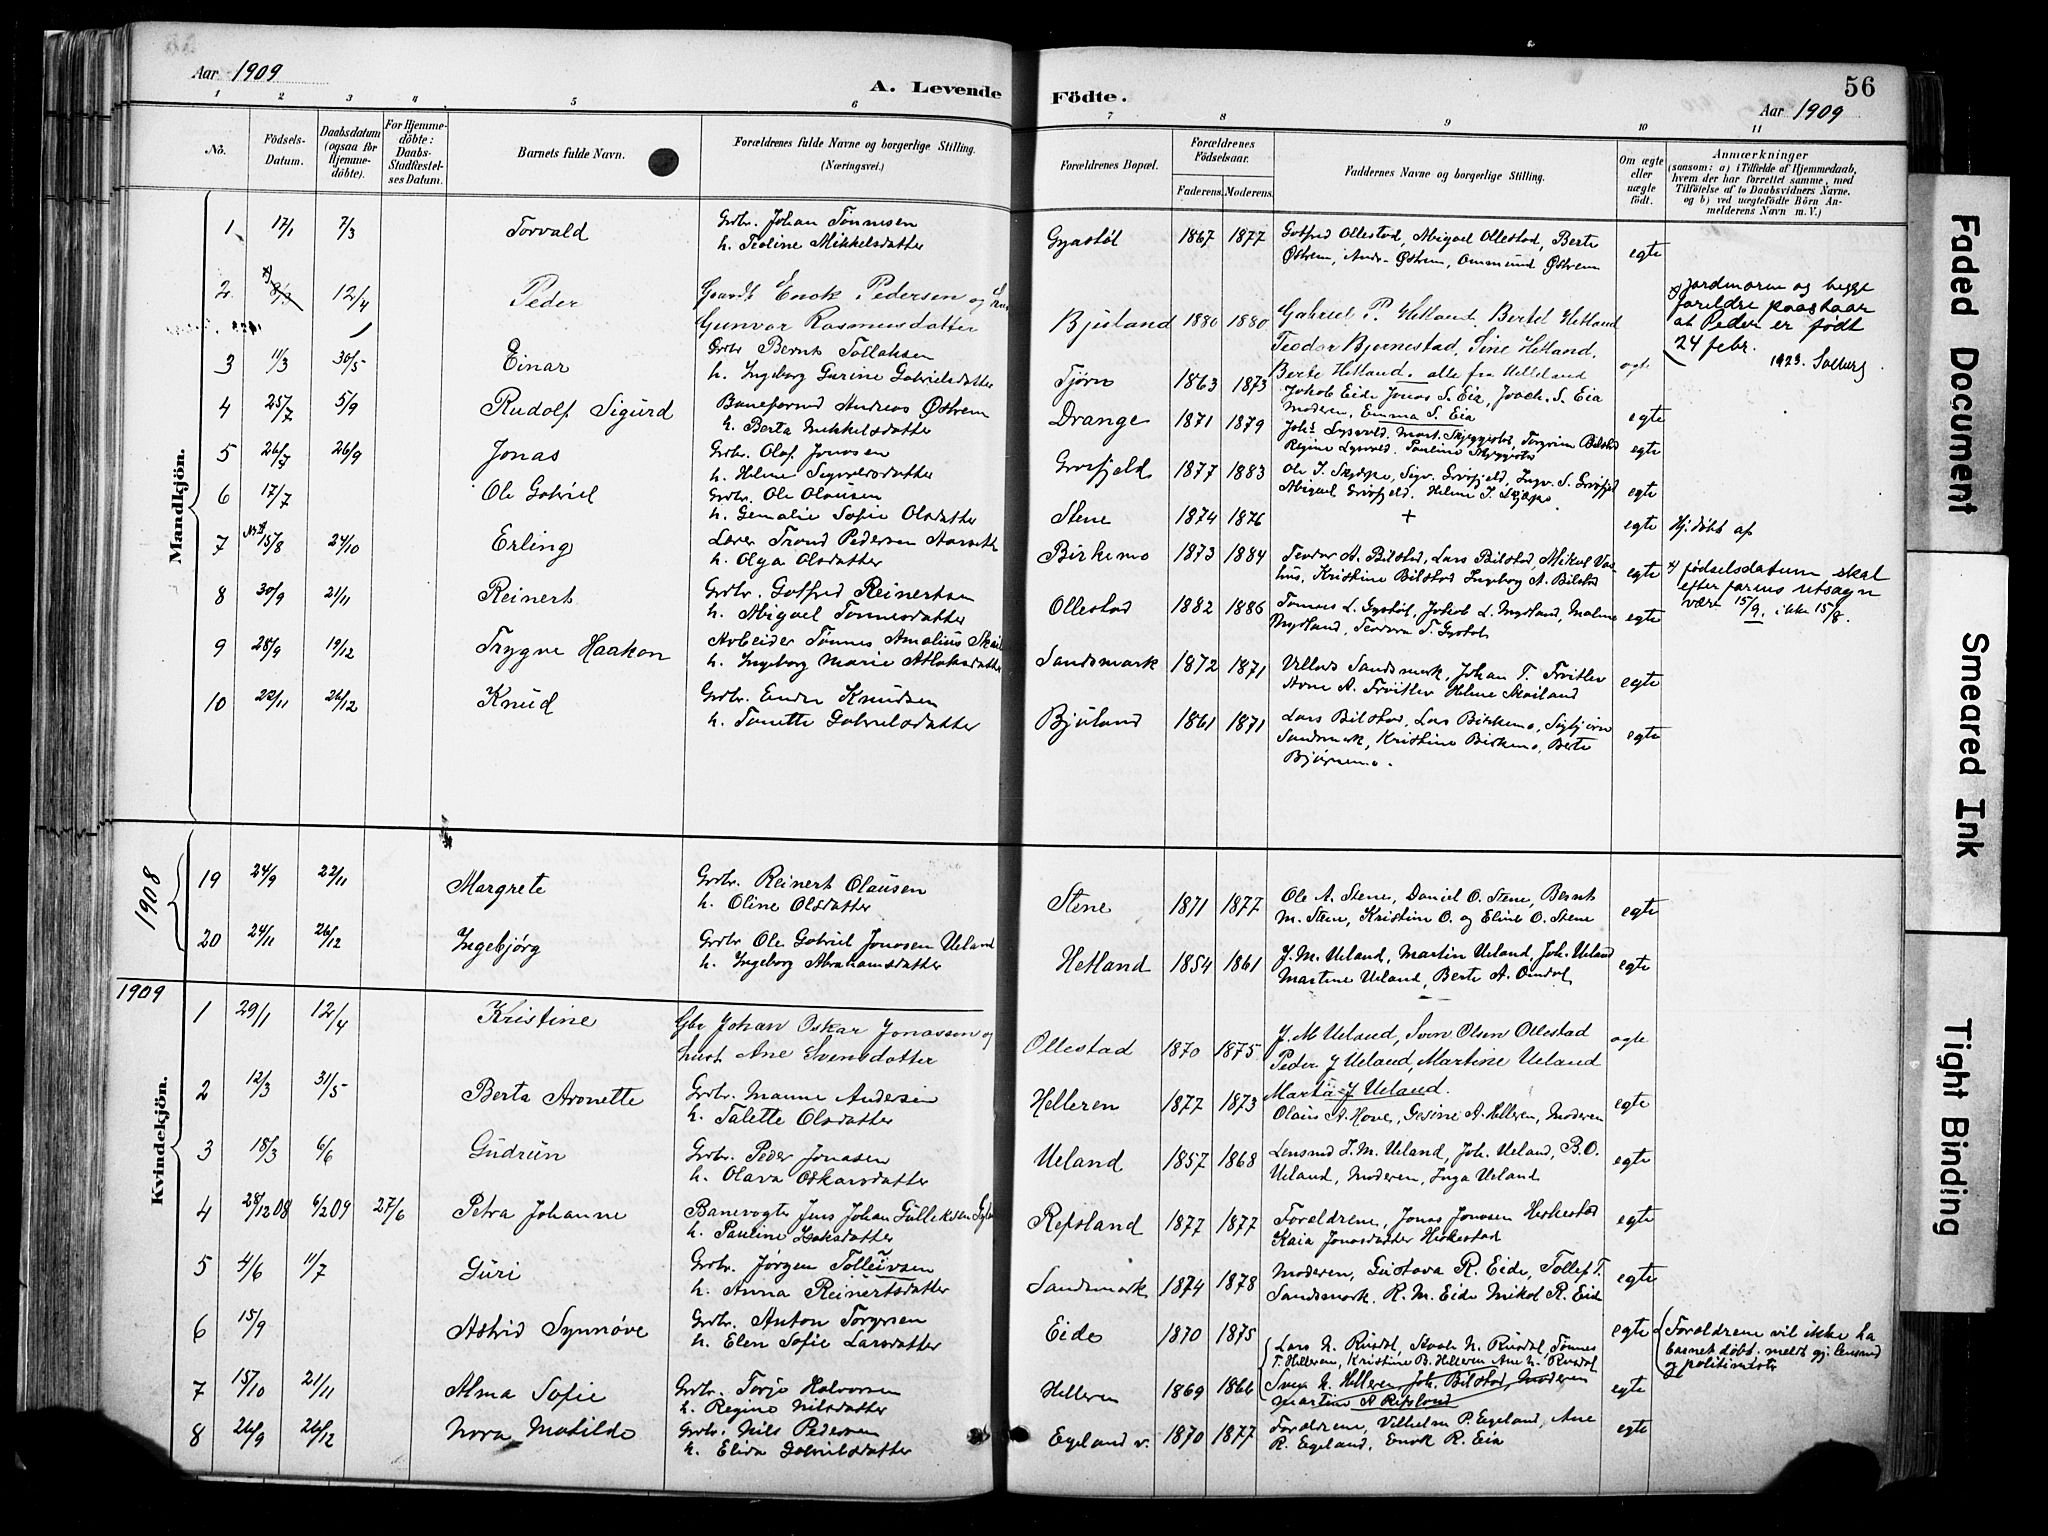 Aar 1909
A. Levende Födte.
56
Aar 1909
1 2 3 4 5 6 7 8 9 10 11
No.
Födsels-Datum.
Daabsdatum (ogsaa for Hjemme-döbte).
For Hjemme-döbte: Daabs-Stadfæstel-ses Datum.
Barnets fulde Navn.
Forældrenes fulde Navne og borgerlige Stilling. (Næringsvei.)
Forældrenes Bopæl.
Forældrenes Födselsaar.
Faderens. Moderens.
Faddernes Navne og borgerlige Stilling.
Om ægte eller uægte födt.
Anmærkninger
(saasom: a) i Tilfælde af Hjemmedaab,
hvem der har forrettet samme, med
Tilföielse af to Daabsvidners Navne,
og b) ved uægtefödte Börn An-
melderens Navn m. V.)
Mandkjön.
1 17/1 7/3 Torvald Grdbr. Johan Tønnesen
h. Teoline Mikkelsdatter
Gyastøl 1867 1877 Gotfred Ollestad, Abigael Ollestad, Berte
Østrem, Andr. Østrem, Ommund Østrem egte
2 8/3 12/4 Peder Gaardb. Enok Pedersen og
Gunvor Rasmusdatter
Bjuland 1880 1880 Gabriel P. Hetland, Bertel Hetland
Teodor Bjernestad, Sine Hetland,
Berte Hetland. alle fra Helleland
egte
x) Jordmoren og begge
foreldre paastaar
at Peder er født
24 febr.
1923. Solberg
3 11/3 30/5 Einar Grdbr. Bernt Tollaksen
h. Ingeborg Gurine Gabrielsdatter
Tjörn 1863 1873 Jakob Eide Jonas S. Eia, Joach. S. Eia
Moderen, Emma S. Eia egte
4 25/7 5/9 Rudolf Sigurd Baneformd Andreas Østrem
h. Berta Mikkelsdatter
Drange 1871 1879
egte
5 26/7 26/9 Jonas Grdbr. Olaf Jonasen
h. Helene Sigvaldsdatter
Grøsfjeld 1877 1883 Ole T. Skjæpe, Sigv. Grøsfjeld, Ingv. S. Grøsfjeld
Abigael Grøsfjeld. Helene T. Skjæpe egte
6 17/7 Ole Gabriel Grdbr. Ole Olausen
h. Gemalie Sofie Olsdatter
Stene 1874 1876 + egte Hj.døbt af
7 15/8 24/10 Erling Lærer Trond Pedersen
h. Olga Olsdatter
Birkemo 1873 1884 Teodor A. Bilstad, Lars Bilstad, Mikael Vas-
hus, Kristine Bilstad Ingeborg A. Bilstad egte
x) fødselsdatum skal
efter farens utsagn
være 15/9. ikke 15/8.
8 30/9 21/11 Reinert Grdbr. Gotfred Reinertsen
h. Abigael Tønnesdatter
Ollestad 1882 1886 Tønnes L. Gystøl, Jakob L. Mydland, Malene
Mydland, Teodora T. Gystøl egte
9 28/9 19/12 Trygve Haakon Arbeider Tønnes Amalius
h. Ingeborg Marie Atlaksdatter
Sandsmark 1872 1871 Villads Sandsmark, Johan T. Trøitlev
Arne A. Trøitlev Helene Skailand egte
10 22/11 26/12 Knud Grdbr. Endre Knudsen
h. Tonette Gabrielsdatter
Bjuland 1861 1871 Lars Bilstad, Lars Birkemo, Sigbjørn
Sandsmark, Kristine Birkemo, Berte
Bjørnemo. egte
1908
19 24/9 22/11 Margrete Grdbr. Reinert Olausen
h. Oline Olsdatter
Stene 1871 1877 Ole A. Stene, Daniel O. Stene, Bernt
M. Stene, Kristine O. og Eline O. Stene egte
20 24/11 26/12 Ingebjørg Grdbr Ole Gabriel Jonasen Ueland
h. Ingeborg Abrahamsdatter
Hetland 1854 1861 J. M. Ueland, Martin Ueland, Joh. Ueland
Martine Ueland, Berte A. Omdal egte
1909
Kvindekjön.
1 29/1 12/4 Kristine Gbr Johan Oskar Jonassen og
hust Ane Svensdatter
Ollestad 1870 1875 J. M Ueland, Sven Olsen Ollestad
Peder J Ueland, Martine Ueland
Marta J Ueland. egte
2 12/3 31/5 Berta Aronette Grdbr. Manne Andersen
h. Talette Olsdatter
Helleren 1877 1873 Olaus A. Hove, Gesine A. Helleren, Moderen egte
3 18/3 6/6 Gudrun Grdbr. Peder Jonasen
h. Olava Oskarsdatter
Ueland 1857 1868 Lensmd J. M. Ueland, Joh. Ueland, B. O.
Ueland, Moderen, Inga Ueland egte
4 28/12 08 6/2 09 27/6 Petra Johanne Banevogter Jens Johan Gulleksen
h. Pauline Isaksdatter
Refsland 1877 1877 Foreldrene, Jonas Jonasen Heskestad
Kaia Jonasdatter Heskestad egte
5 4/6 11/7 Guri Grdbr. Jørgen Tolleivsen
h. Anna Reinertsdatter
Sandsmark 1874 1878 Moderen, Gustava R. Eide, Tollef T.
Sandsmark. R. M. Eide Mikal R. Eide egte
6 15/9 Astrid Synnøve Grdbr. Anton Torgersen
h. Elen Sofie Larsdatter
Eide 1870 1875 egte Foreldrene vil ikke ha
barnet døbt. meldt gj. lensmd
og politimester
7 15/10 21/11 Alma Sofie Grdbr. Torjo Halvorsen
h. Regine Nilsdatter
Helleren 1869 1866 Lars N. Rusdal, N. Rusdal, Tønnes
T. Helleren, Kristine B. Helleren Ane N. Rusdal
Sven N. Helleren, Joh. Bilstad, Moderen
Martine A Refsland egte
8 26/9 26/12 Nora Matilde Grdbr. Nils Pedersen
h. Elida Gabrielsdatter
Egeland v. 1870 1877 Foreldrene, Vilhelm P. Egeland, Ane
R. Egeland, Enok R. Eia egte
Faded Document
Smeared Ink
Tight Binding